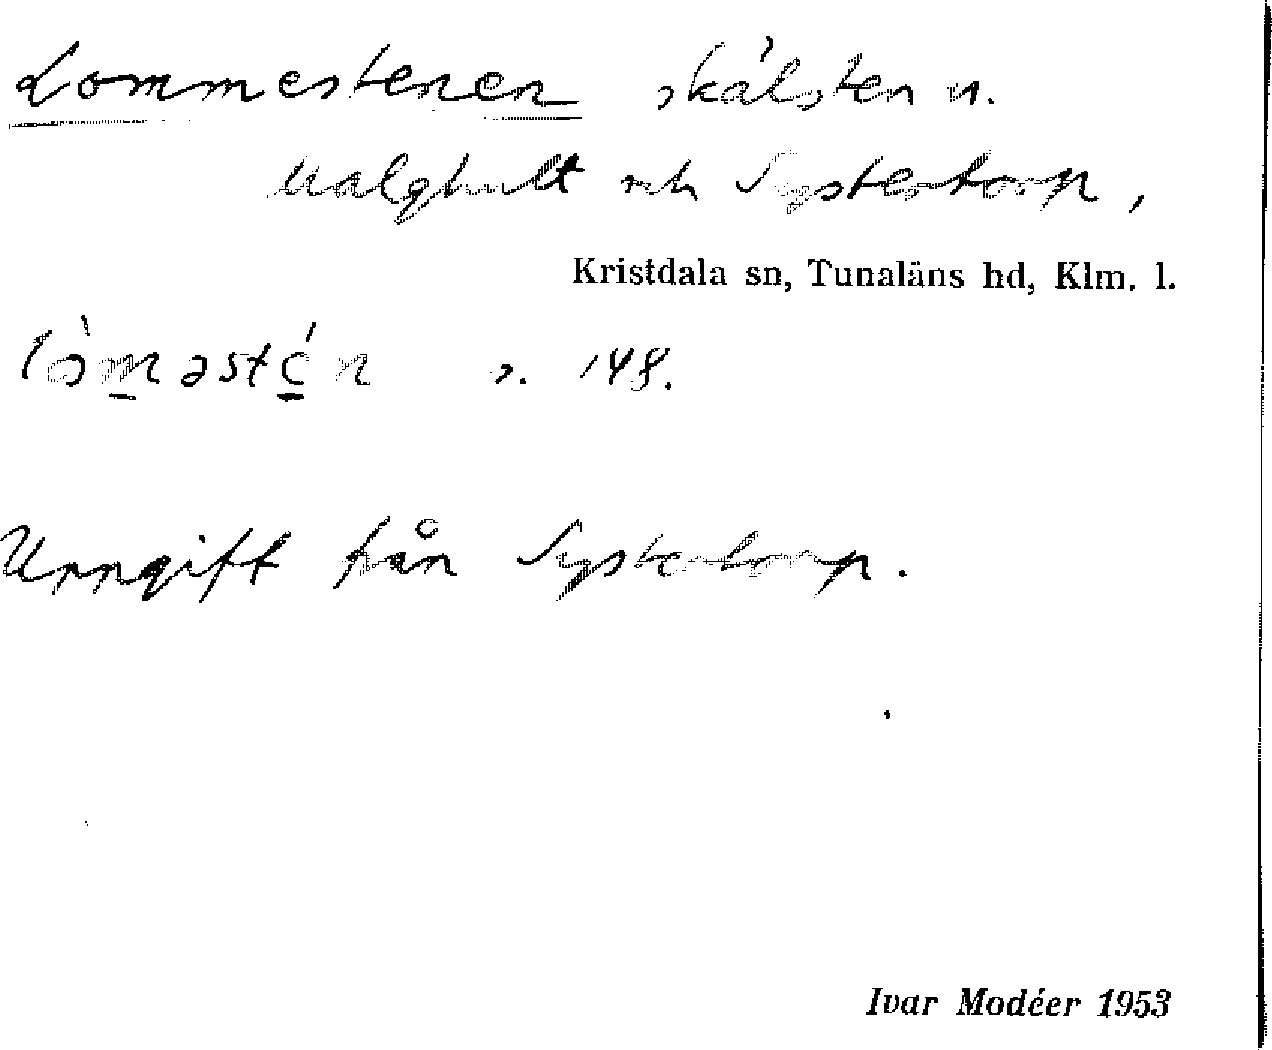 Lommestenen skälsten u.
Ualghult och Systertorp,
Kristdala sn, Tunaläns hd, Klm. l.
s. 148.
Uppgift från Systertorp.
Ivar Modéer 1953